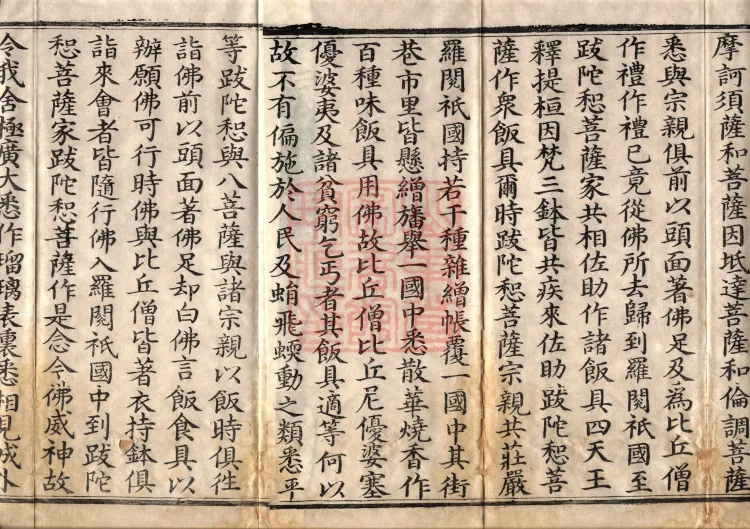 摩訶須薩和菩薩因坻達菩薩和倫調菩薩
悉與宗親俱前以頭面著佛足及為比丘僧
作禮作禮已竟從佛所去歸到羅閱祇國至
跋陀惒菩薩家共相佐助作諸飯具四天王
釋提桓因梵三鉢皆共疾來佐助跋陀惒菩
薩作衆飯具爾時跋陀惒菩薩宗親共莊嚴
羅閱祇國持若干種雜繒帳覆一國中其街
巷市里皆懸繒旛舉一國中悉散華燒香作
百種味飯具用佛故比丘僧比丘尼優婆塞
優婆夷及諸貧窮乞丐者其飯具適等何以
故不有偏施於人民及蜎飛蠕動之類悉平
等跋陀惒與八菩薩與諸宗親以飯時俱往
詣佛前以頭面著佛足却白佛言飯食具以
辦願佛可行時佛與比丘僧皆著衣持鉢俱
詣來會者皆隨行佛入羅閱祇國中到跋陀
惒菩薩家跋陀惒菩薩作是念今佛威神故
令我舍極廣大悉作瑠璃表裏悉相見城外